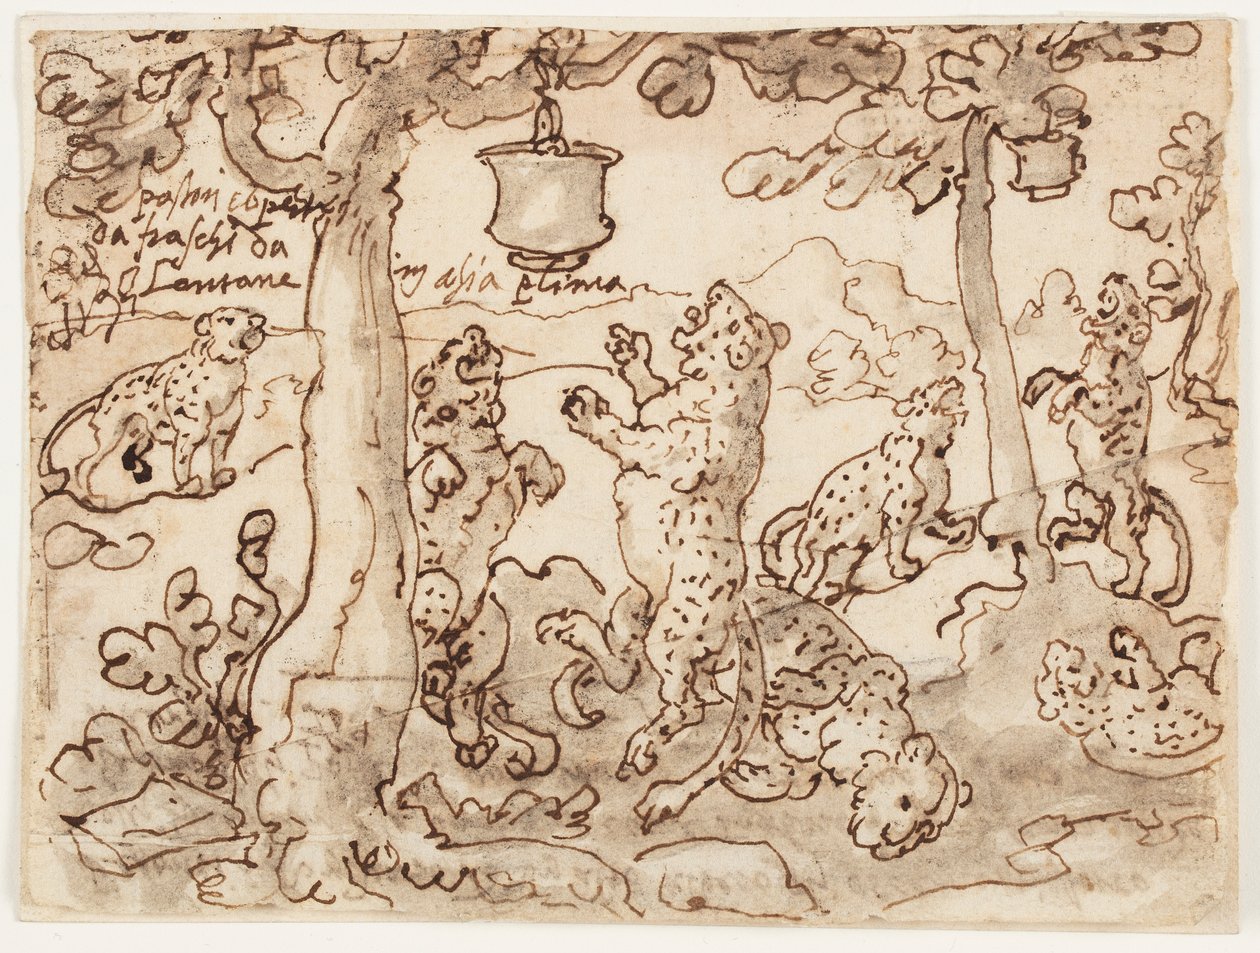 pastori coperti
da fraschi da
Lontane
in asia plinio